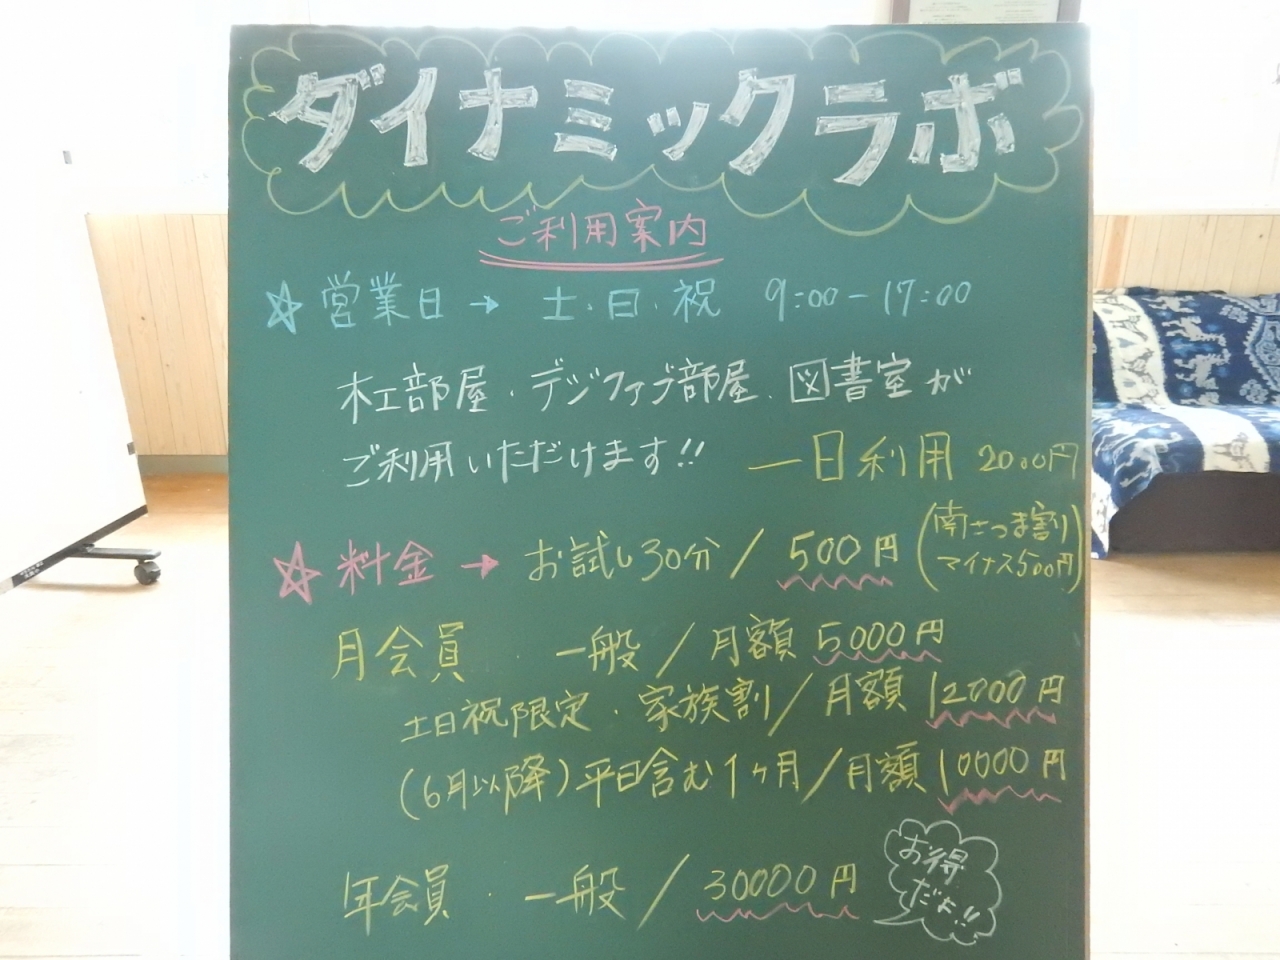 ダイナミックラボ
ご利用案内
☆営業日→ 土・日・祝 9:00-17:00
木工部屋・デジファブ部屋.図書室が
ご利用いただけます!!
一日利用 2000円
☆料金→ お試し30分/500円
(南さつま割り
マイナス500円)
月会員・一般/月額5000円
土日祝限定・家族割/月額12000円
(6月以降)平日含む1ヶ月/月額10000円
年会員・一般/30000円
お得
だよ!!